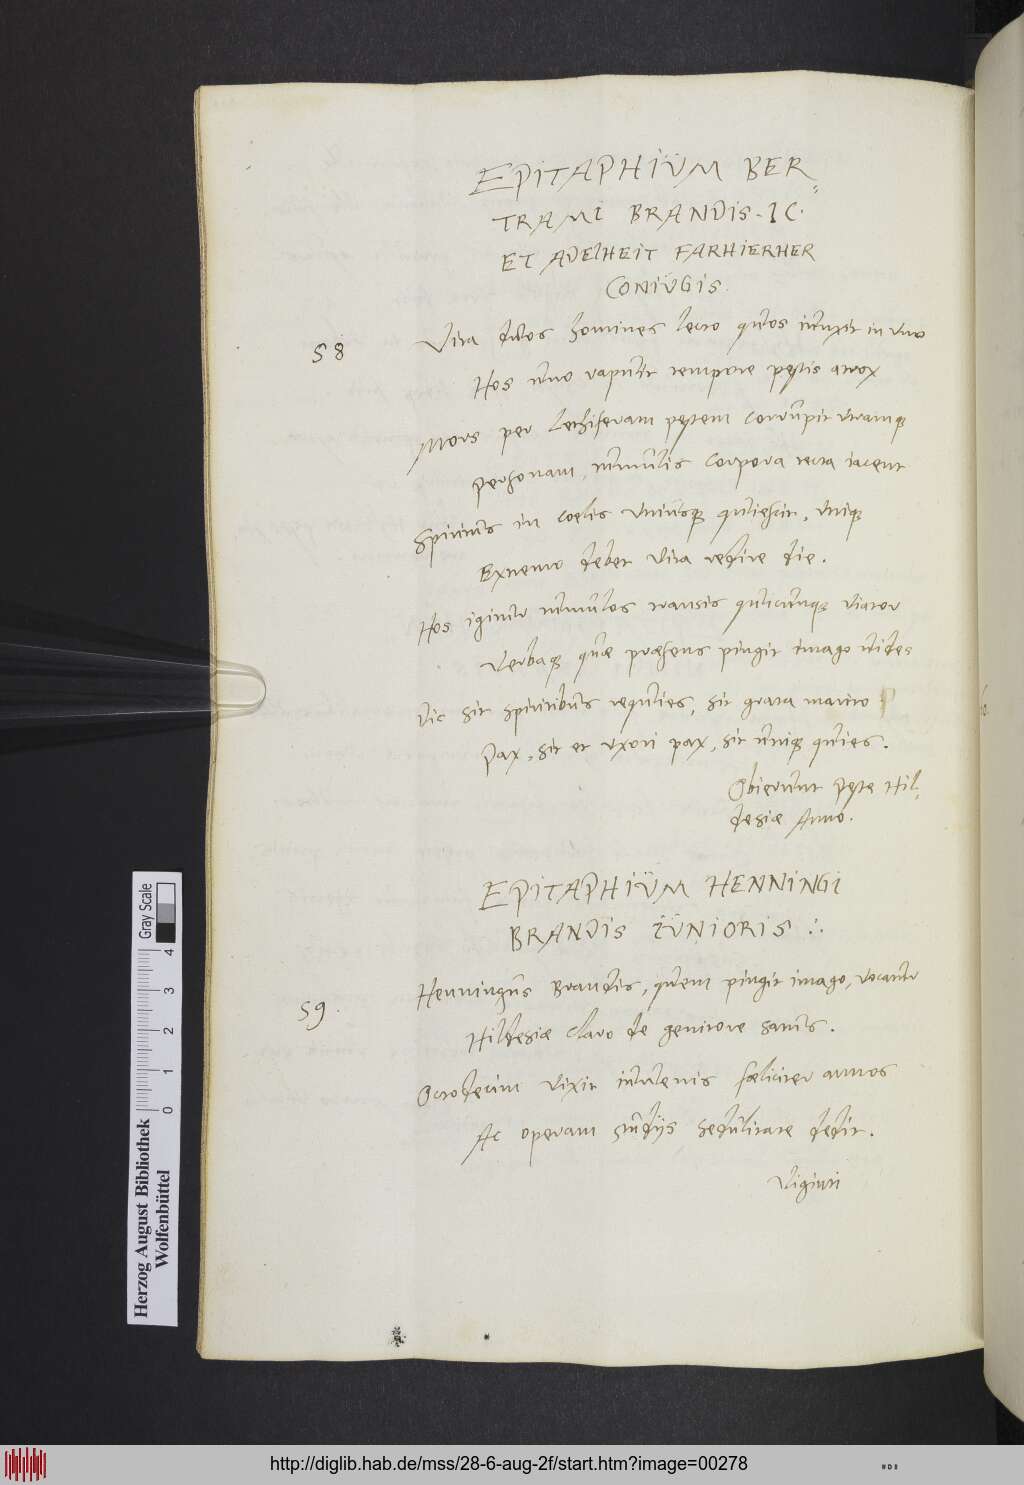 EPITAPHIUM BER=
TRAMI BRANDIS. IC.
ET ADELHEIT FARHIERHER
CONIUGIS.
58
Vita duos homines lecto quos iunxit in uno
Hos uno rapuit tempore pestis atrox
Mors per lethiferam pestem corrupit utramq
personam, tumulis corpora tecta iacent
Spiritus in coelis uniusq quiescit, uniq
Extremo debet vita redire die.
Hos igitur tumulos transis quicunq viator
Verbaq quae praesens pingit imago vides
Dic sit spiritibus requies, sit grata marito
Pax, sit et uxori pax, sit utriq quies.
Obierunt peste Hil,
desiae Anno.
EPITAPHIUM HENNINGI
BRANDIS IUNIORIS
59.
Henningus Brandis, quem pingit imago, vocatur
Hildesiae claro de genitore satus.
Octodecim vixit iuvenis foeliciter annos
Ac operam studijs sedulitate dedit.
Viginti
Herzog August Bibliothek
Wolfenbüttel
0 1 2 3 4
Gray Scale
http://diglib.hab.de/mss/28-6-aug-2f/start.htm?image=00278